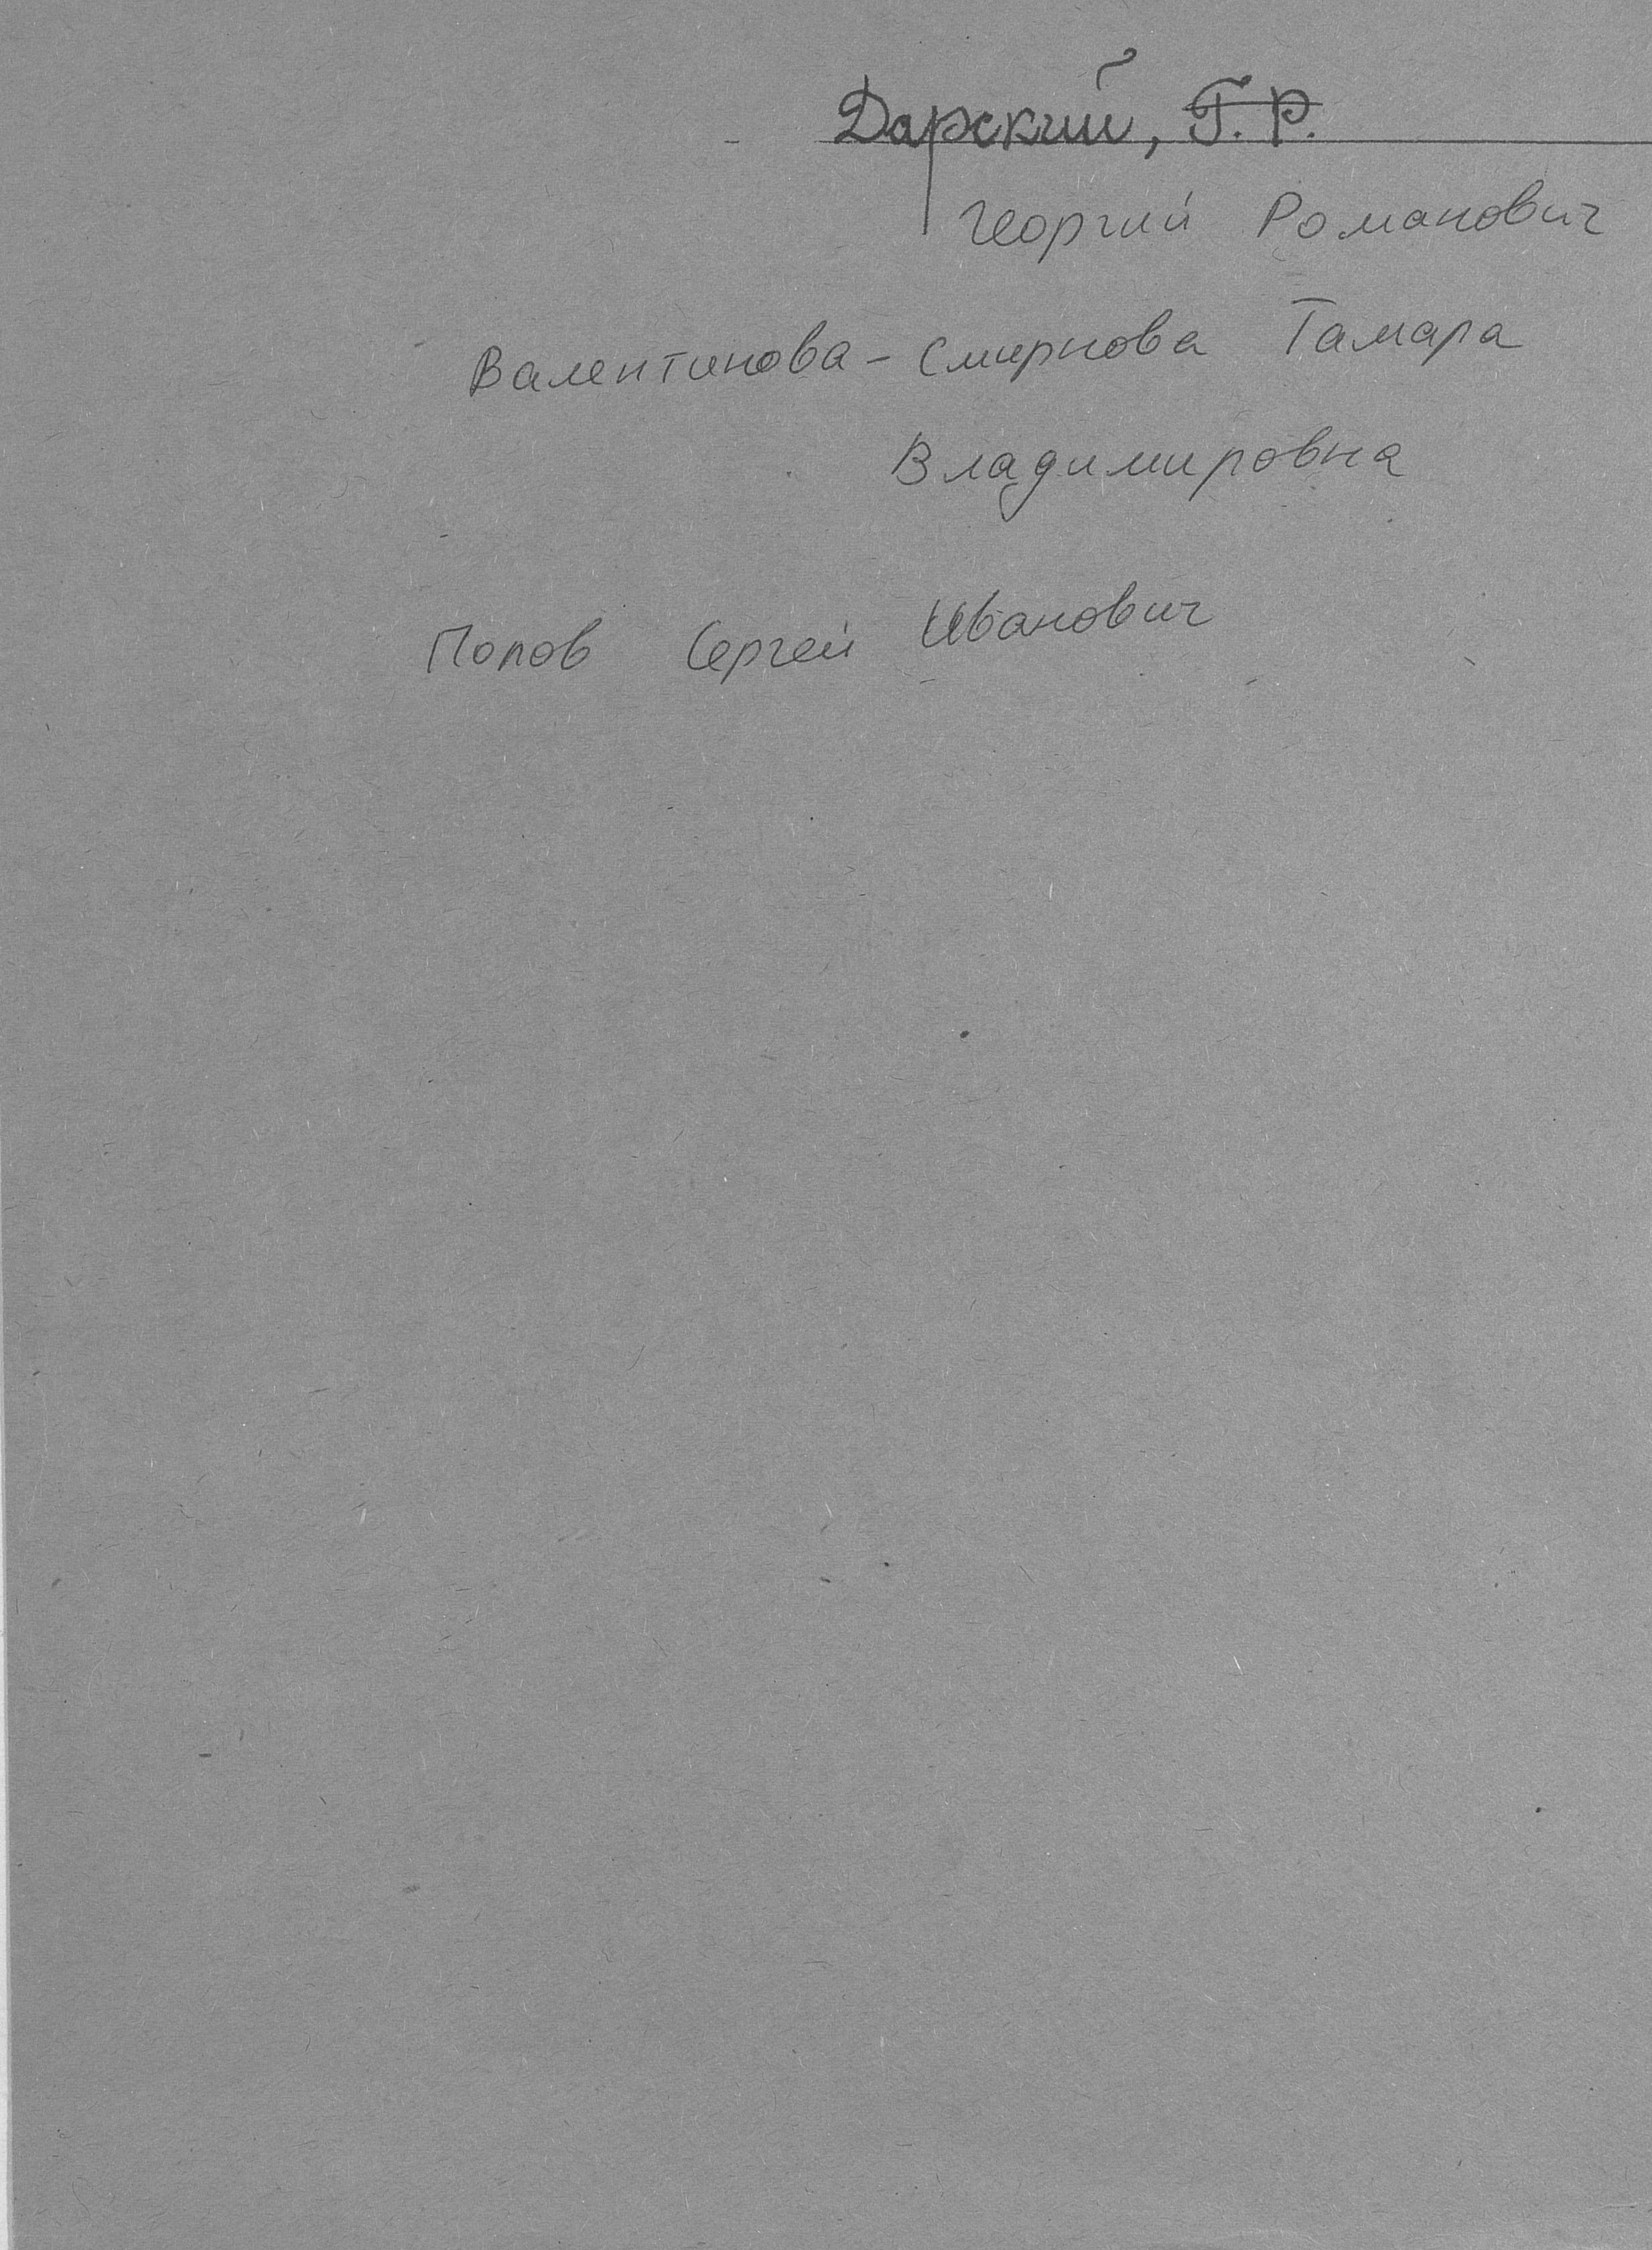 Дарский, Г. Р.
Георгий Романович
Валентинова - Смирнова Тамара
Владимировна
Попов Сергей Иванович